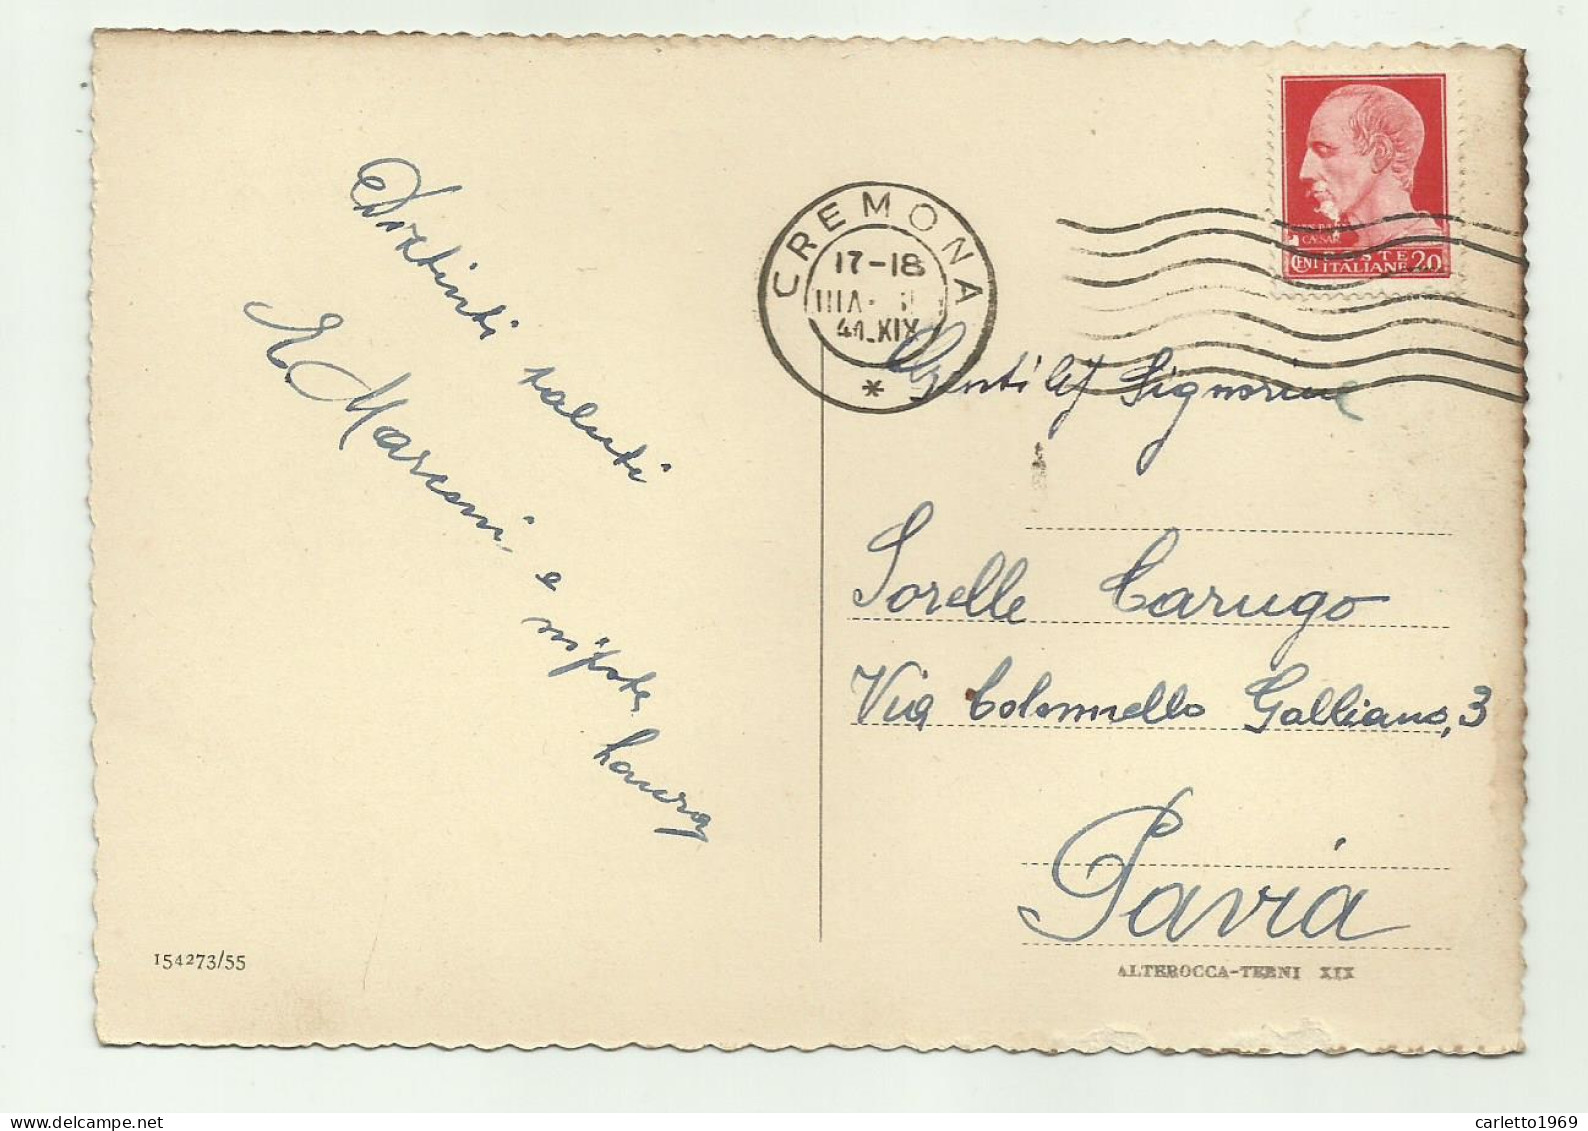 Distinti saluti
E. Marconi e nipote Laura
154273/55
CREMONA
17-18
41.XIX
*
CAESAR
CENT 20
POSTE
ITALIANE
Gentili Signorine
Sorelle Carugo
Via Colonnello Galliano, 3
Pavia
ALTEROCCA-TERNI XIX
carletto1969
delcampe.net